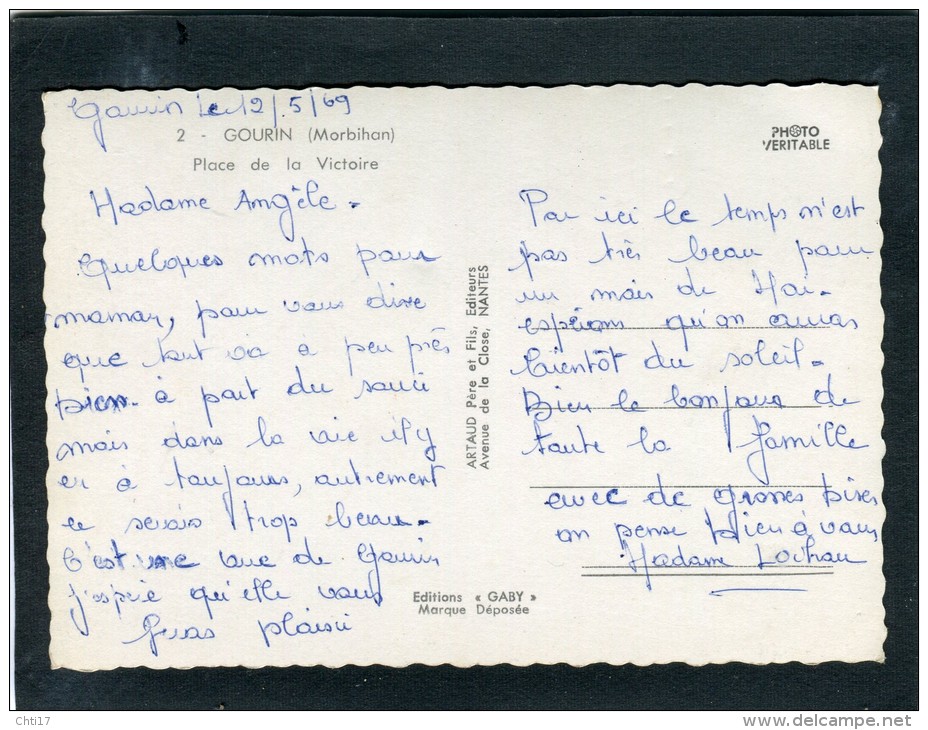 Gourin le 12/5/69
2 - GOURIN (Morbihan)
Place de la Victoire
Madame Angèle -
Quelques mots pour
maman, pour vous dire
que tout va a peu près
bien à part du souci
mais dans la vie il y
en à toujours, autrement
ce serais trop beau -
C'est une vue de Gourin
j'espère qu'elle vous
feras plaisir
ARTAUD Père et Fils, Editeurs
Avenue de la Close, NANTES
Editions « GABY »
Marque Déposée
PHOTO
VERITABLE
Par ici le temps n'est
pas très beau pour
un mois de Mai -
espérons qu'on auras
bientôt du soleil -
Bien le bonjour de
toute la famille
avec de grosses bises
on pense bien à vous
Madame
Chti17
http://www.delcampe.net